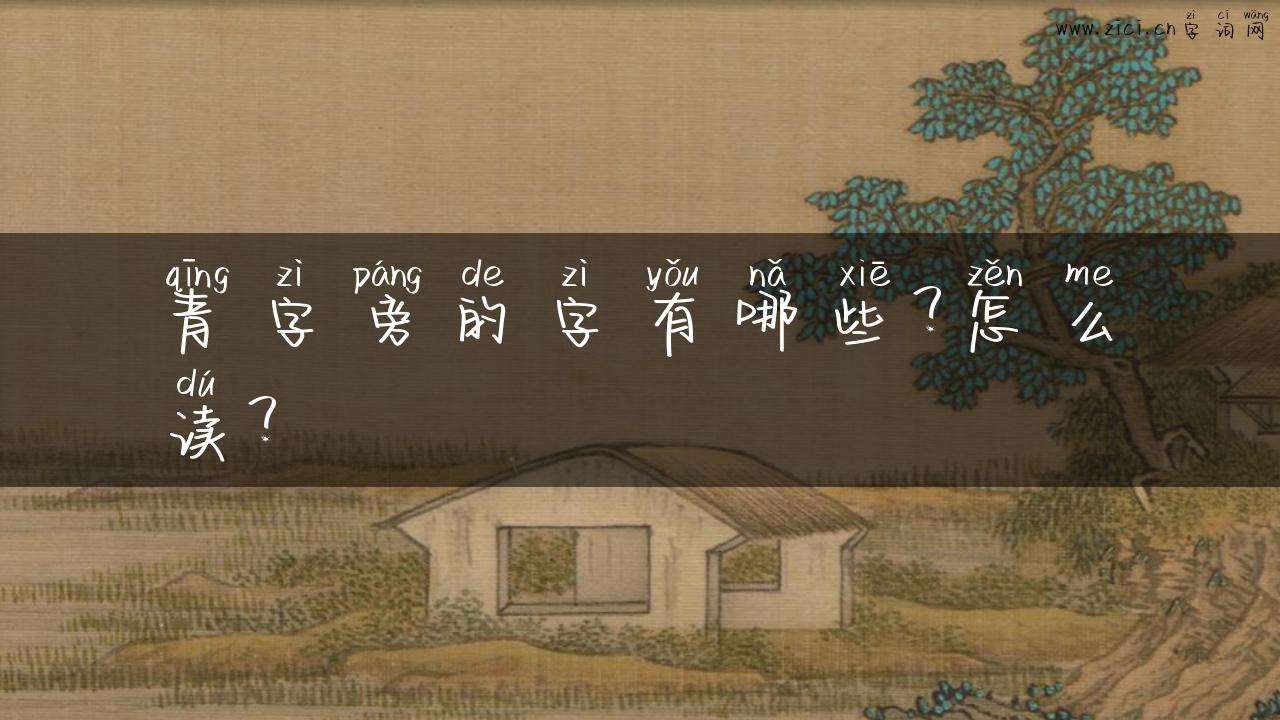 zì cí wǎng
www.zici.cn 字词网
qīng zì páng de zì yǒu nǎ xiē zěn me
青字旁的字有哪些？怎么
dú
读？